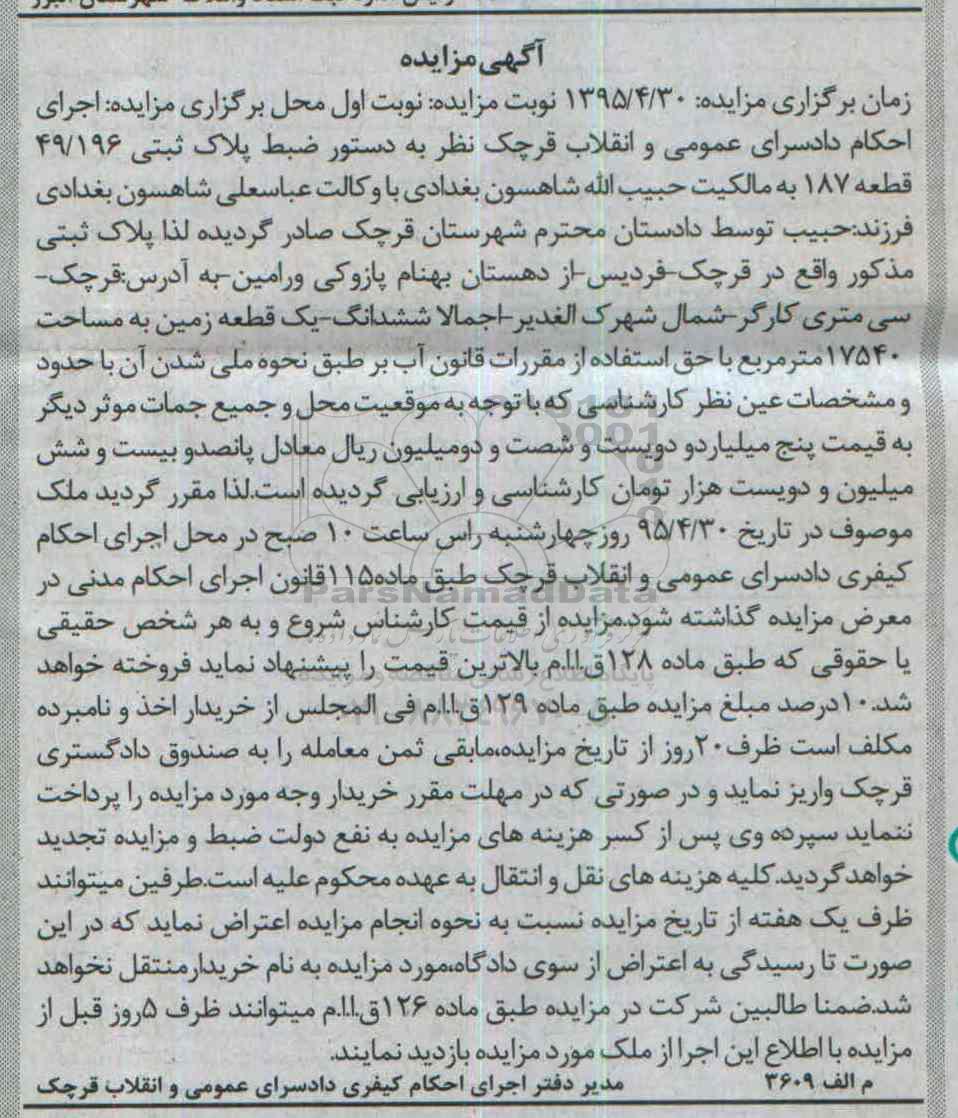 آگهی مزایده
زمان برگزاری مزایده: ۱۳۹۵/۴/۳۰ نوبت مزایده: نوبت اول محل برگزاری مزایده: اجرای
احکام دادسرای عمومی و انقلاب قرچک نظر به دستور ضبط پلاک ثبتی ۴۹/۱۹۶
قطعه ۱۸۷ به مالکیت حبیب الله شاهسون بغدادی با وکالت عباسعلی شاهسون بغدادی
فرزند:حبیب توسط دادستان محترم شهرستان قرچک صادر گردیده لذا پلاک ثبتی
مذکور واقع در قرچک-فردیس-از دهستان بهنام پازوکی ورامین-به آدرس:قرچک-
سی متری کارگر-شمال شهرک الغدیر-اجمالا ششدانگ-یک قطعه زمین به مساحت
۱۷۵۴۰مترمربع با حق استفاده از مقررات قانون آب بر طبق نحوه ملی شدن آن با حدود
و مشخصات عین نظر کارشناسی که با توجه به موقعیت محل و جمیع جمات موثر دیگر
به قیمت پنج میلیاردو دویست و شصت و دومیلیون ریال معادل پانصدو بیست و شش
میلیون و دویست هزار تومان کارشناسی و ارزیابی گردیده است.لذا مقرر گردید ملک
موصوف در تاریخ ۹۵/۴/۳۰ روزچهارشنبه راس ساعت ۱۰ صبح در محل اجرای احکام
کیفری دادسرای عمومی و انقلاب قرچک طبق ماده۱۱۵قانون اجرای احکام مدنی در
معرض مزایده گذاشته شود.مزایده از قیمت کارشناس شروع و به هر شخص حقیقی
یا حقوقی که طبق ماده ۱۲۸ق.ا.ا.م بالاترین قیمت را پیشنهاد نماید فروخته خواهد
شد.۱۰درصد مبلغ مزایده طبق ماده ۱۲۹ق.ا.ا.م فی المجلس از خریدار اخذ و نامبرده
مکلف است ظرف۲۰روز از تاریخ مزایده،مابقی ثمن معامله را به صندوق دادگستری
قرچک واریز نماید و در صورتی که در مهلت مقرر خریدار وجه مورد مزایده را پرداخت
ننماید سپرده وی پس از کسر هزینه های مزایده به نفع دولت ضبط و مزایده تجدید
خواهدگردید.کلیه هزینه های نقل و انتقال به عهده محکوم علیه است.طرفین میتوانند
ظرف یک هفته از تاریخ مزایده نسبت به نحوه انجام مزایده اعتراض نماید که در این
صورت تا رسیدگی به اعتراض از سوی دادگاه،مورد مزایده به نام خریدارمنتقل نخواهد
شد.ضمنا طالبین شرکت در مزایده طبق ماده ۱۲۶ق.ا.ا.م میتوانند ظرف ۵روز قبل از
مزایده با اطلاع این اجرا از ملک مورد مزایده بازدید نمایند.
م الف ۳۶۰۹ مدیر دفتر اجرای احکام کیفری دادسرای عمومی و انقلاب قرچک
ParsNamadData